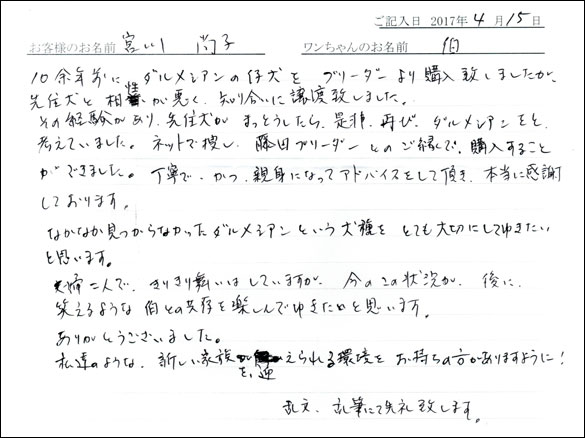 ご記入日 2017年4月15日
お客様のお名前 宮川 尚子 ワンちゃんのお名前 伯
10余年前に ダルメシアンの仔犬を ブリーダーより購入致しましたが、
先住犬と相性が悪く、知り合いに譲渡致しました。
その経験があり、先住犬が まっとうしたら、是非、再び、ダルメシアンをと、
考えていました。ネットで捜し、藤田ブリーダーとのご縁で、購入すること
ができました。丁寧で、かつ、親身になってアドバイスをして頂き、本当に感謝
しております。
なかなか見つからなかったダルメシアンという犬種を とても大切にしてゆきたい
と思います。
夫婦二人で、きりきり舞いはしていますが、今のこの状況が、後に、
笑えるような 伯との生存を楽しんでゆきたいと思います。
ありがとうございました。
私達のような、新しい家族を、迎えられる環境を お持ちの方がありますように!
乱文、乱筆にて失礼致します。